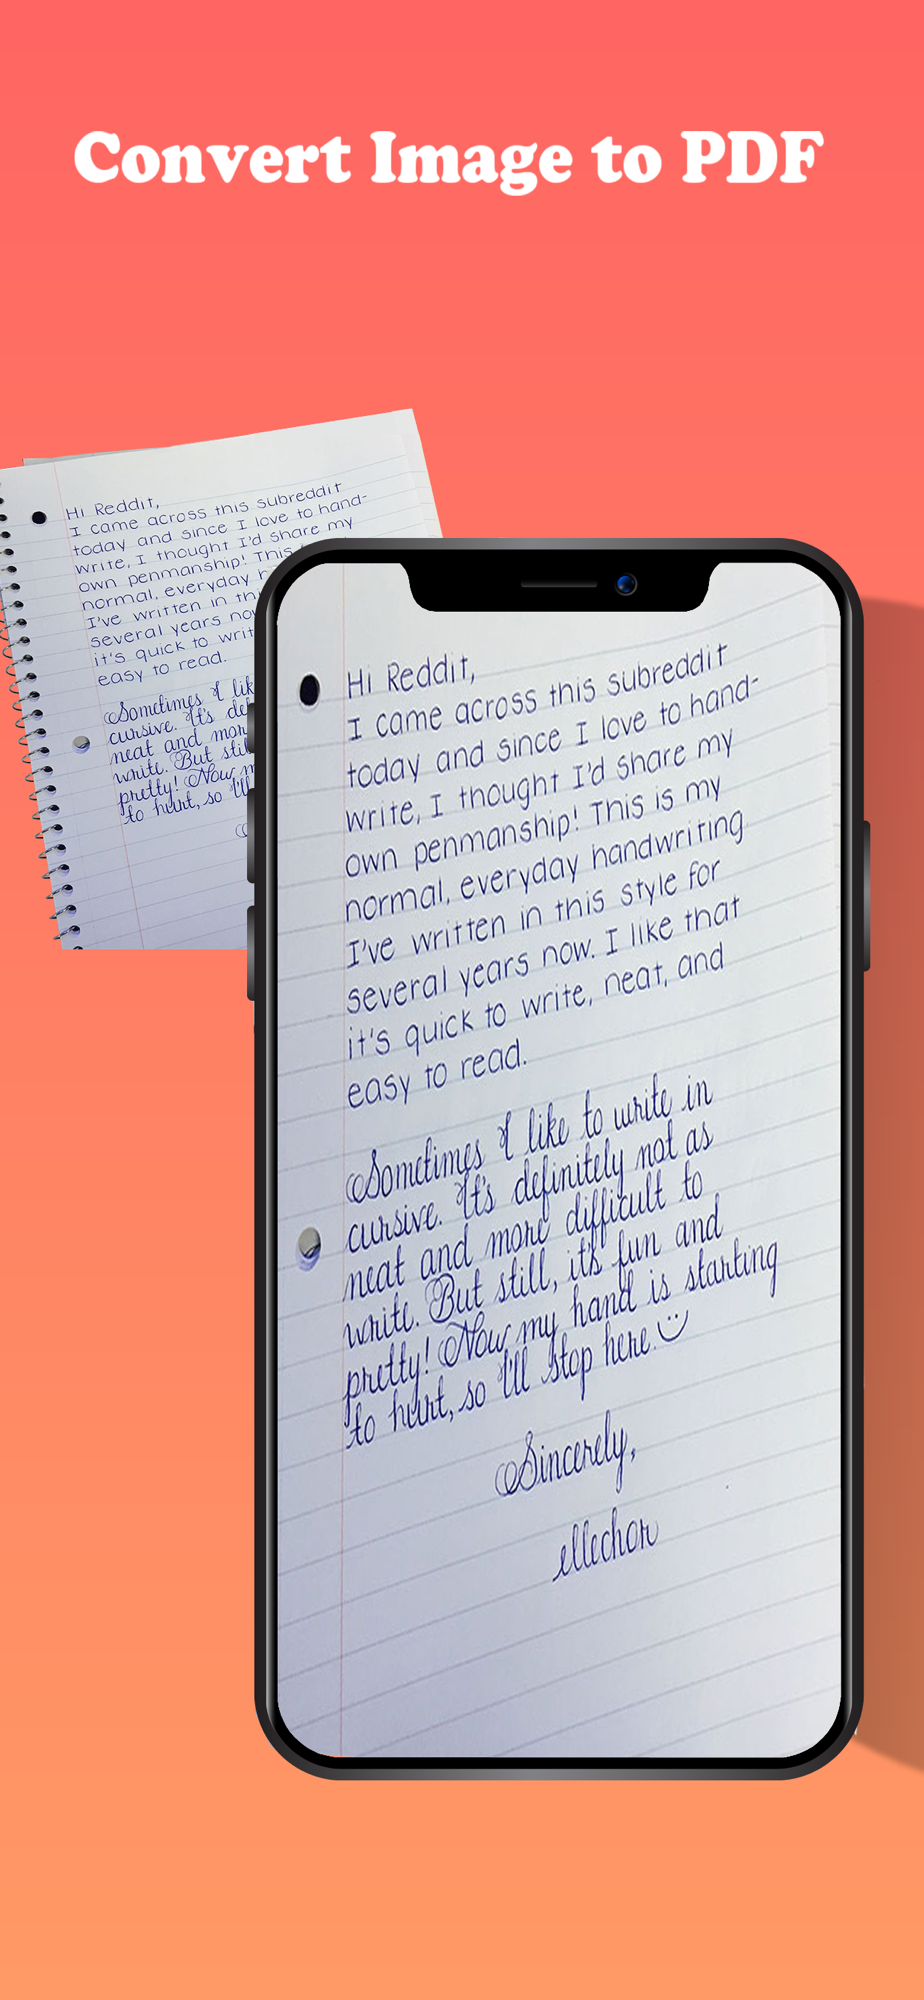 Convert Image to PDF
Hi Reddit,
I came across this subreddit
today and since I love to hand-
write, I thought I'd share my
own penmanship! This
normal, everyday
I've written in
several years now
it's quick to
easy to read.
Sometimes I
cursive. It's
neat and
write. But
pretty! Now
to hurt, so I'll
Hi Reddit,
I came across this subreddit
today and since I love to hand-
write, I thought I'd share my
own penmanship! This is my
normal, everyday handwriting
I've written in this style for
several years now. I like that
it's quick to write, neat, and
easy to read.
Sometimes I like to write in
cursive. It's definitely not as
neat and more difficult to
write. But still, it's fun and
pretty! Now my hand is starting
to hurt, so I'll stop here. ☺
Sincerely,
ellechor